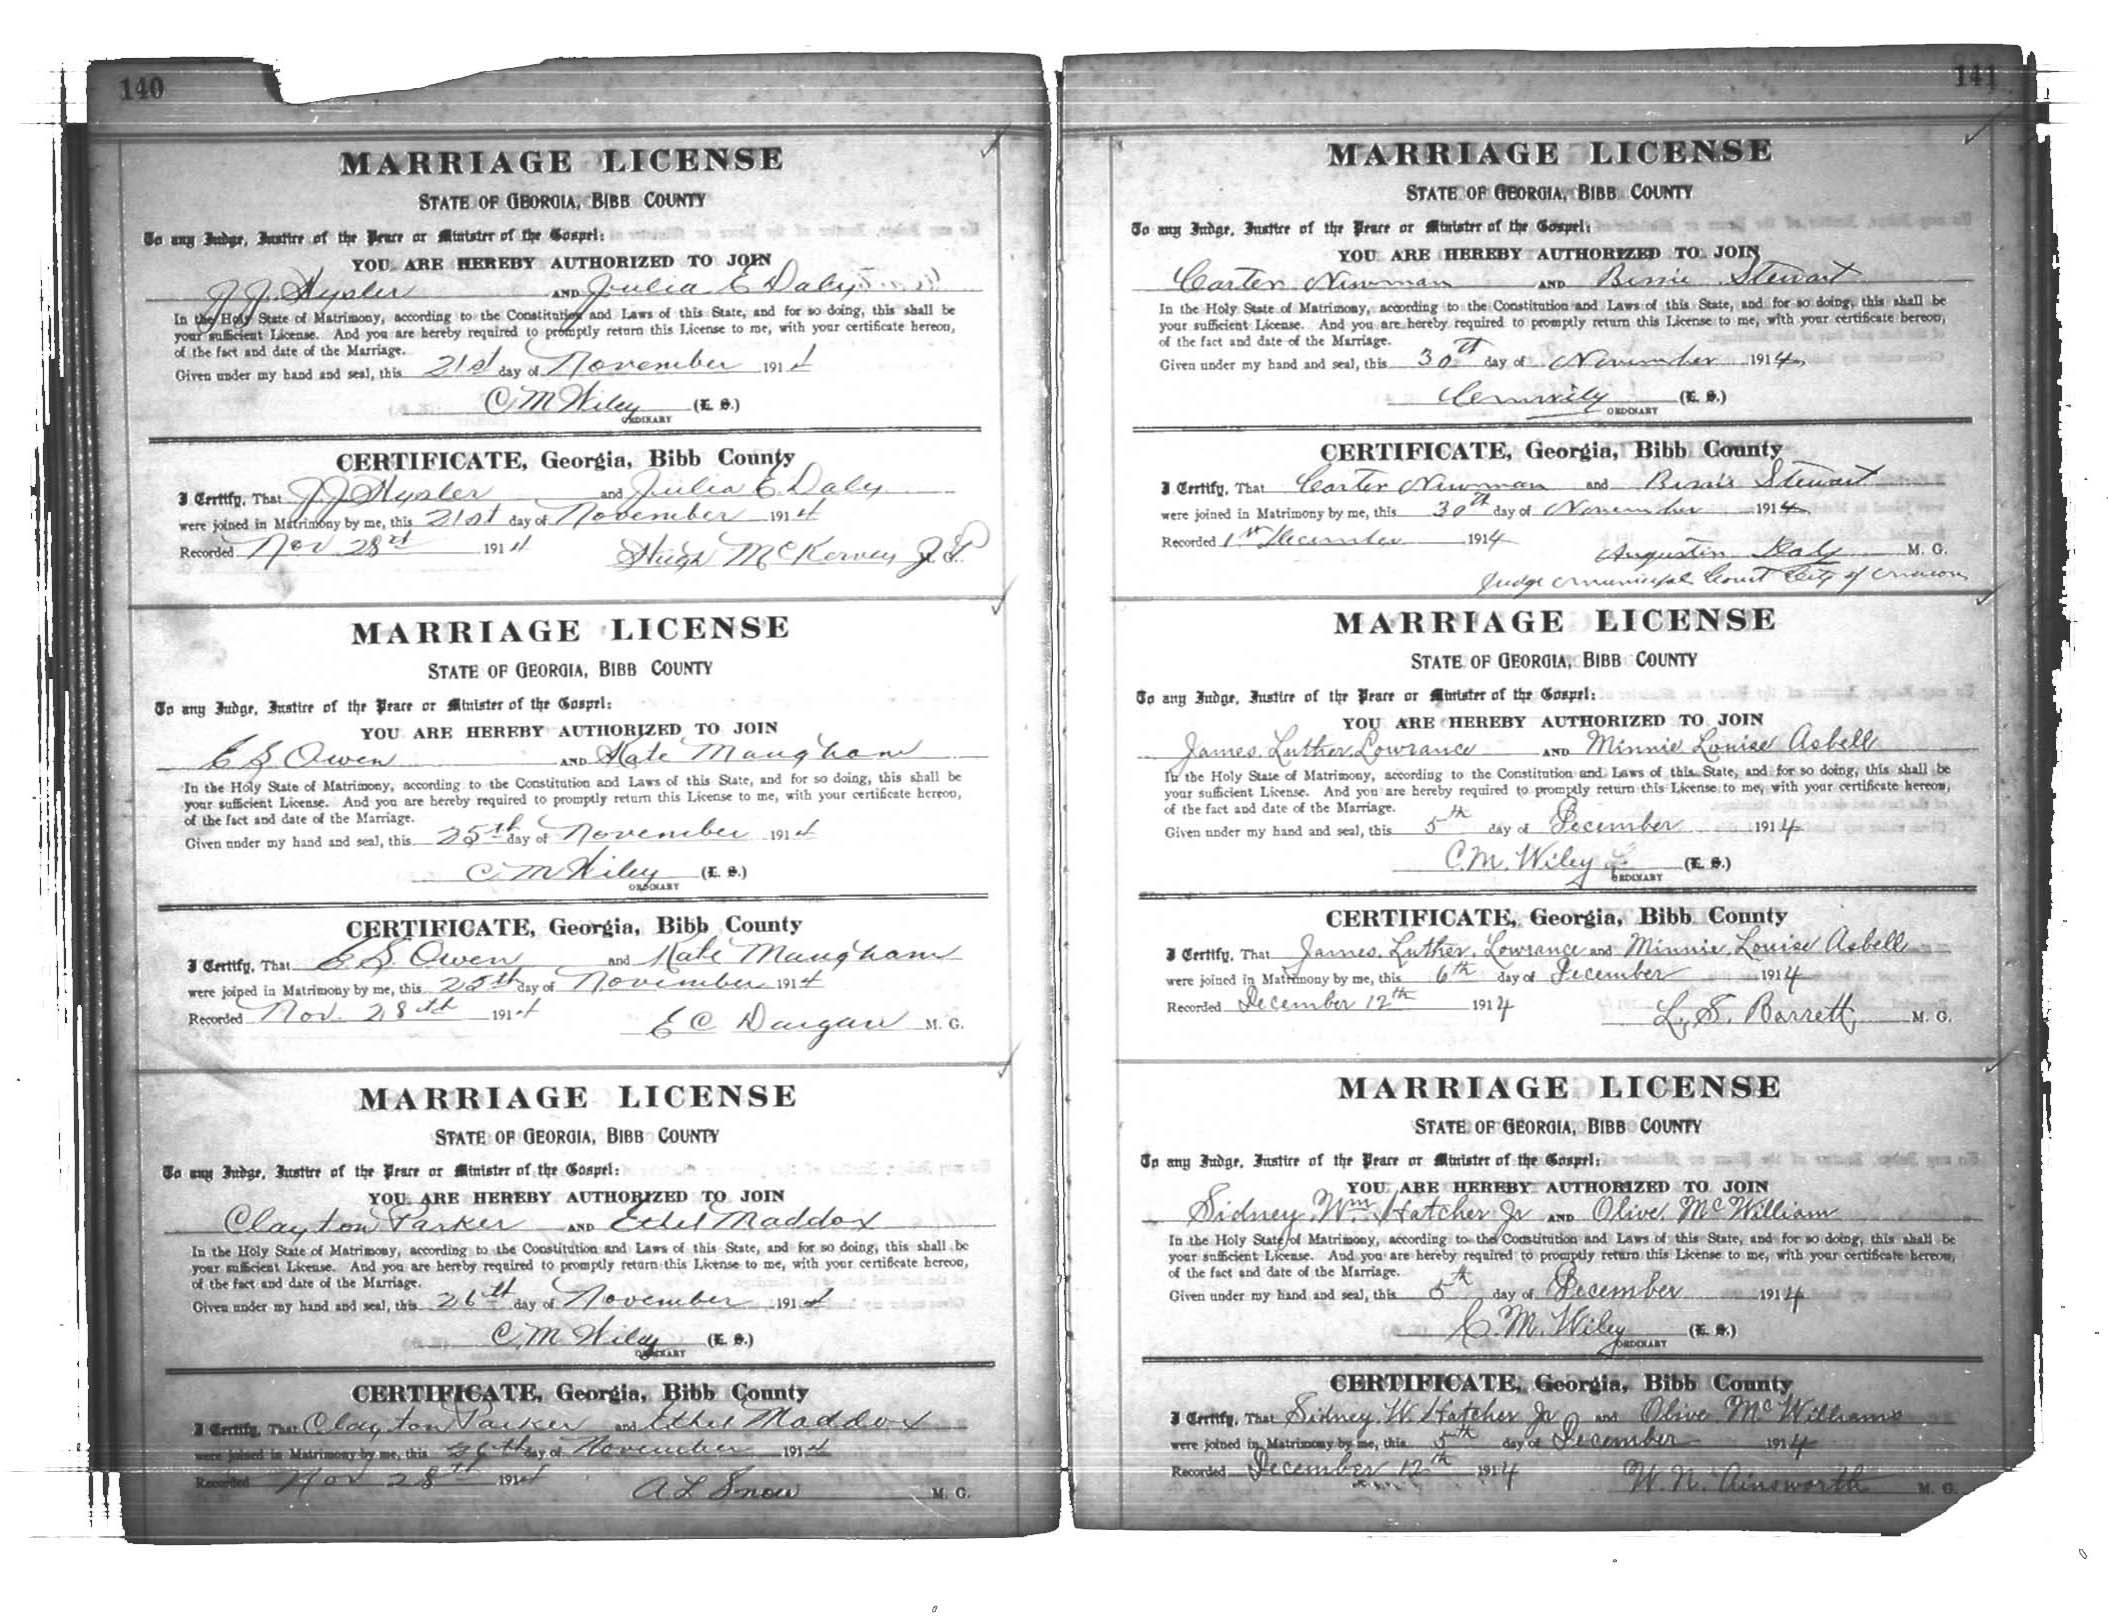 140
MARRIAGE LICENSE
STATE OF GEORGIA, BIBB COUNTY
To any Judge, Justice of the Peace or Minister of the Gospel:
YOU ARE HEREBY AUTHORIZED TO JOIN
J J Hysler AND Julia E Daly
In the Holy State of Matrimony, according to the Constitution and Laws of this State, and for so doing, this shall be
your sufficient License. And you are hereby required to promptly return this License to me, with your certificate hereon,
of the fact and date of the Marriage.
Given under my hand and seal, this 21st day of November 1914
C M Wiley (L. S.)
ORDINARY
CERTIFICATE, Georgia, Bibb County
I Certify, That J J Hysler and Julia E Daly
were joined in Matrimony by me, this 21st day of November 1914
Recorded Nov 28 1914 Hugh McKervey J. P.
MARRIAGE LICENSE
STATE OF GEORGIA, BIBB COUNTY
To any Judge, Justice of the Peace or Minister of the Gospel:
YOU ARE HEREBY AUTHORIZED TO JOIN
E S Owen AND Kate Maugham
In the Holy State of Matrimony, according to the Constitution and Laws of this State, and for so doing, this shall be
your sufficient License. And you are hereby required to promptly return this License to me, with your certificate hereon,
of the fact and date of the Marriage.
Given under my hand and seal, this 25th day of November 1914
C M Wiley (L. S.)
ORDINARY
CERTIFICATE, Georgia, Bibb County
I Certify, That E S Owen and Kate Maugham
were joined in Matrimony by me, this 25th day of November 1914
Recorded Nov. 28th 1914 E C Dargan M. G.
MARRIAGE LICENSE
STATE OF GEORGIA, BIBB COUNTY
To any Judge, Justice of the Peace or Minister of the Gospel:
YOU ARE HEREBY AUTHORIZED TO JOIN
Clayton Parker AND Ethel Maddox
In the Holy State of Matrimony, according to the Constitution and Laws of this State, and for so doing, this shall be
your sufficient License. And you are hereby required to promptly return this License to me, with your certificate hereon,
of the fact and date of the Marriage.
Given under my hand and seal, this 26th day of November 1914
C. M. Wiley (L. S.)
ORDINARY
CERTIFICATE, Georgia, Bibb County
I Certify, That Clayton Parker and Ethel Maddox
were joined in Matrimony by me, this 26th day of November 1914
Recorded Nov 28th 1914 A L Snow M. G.
141
MARRIAGE LICENSE
STATE OF GEORGIA, BIBB COUNTY
To any Judge, Justice of the Peace or Minister of the Gospel:
YOU ARE HEREBY AUTHORIZED TO JOIN
Carter Newman AND Stewart
In the Holy State of Matrimony, according to the Constitution and Laws of this State, and for so doing, this shall be
your sufficient License. And you are hereby required to promptly return this License to me, with your certificate hereon,
of the fact and date of the Marriage.
Given under my hand and seal, this 30th day of November 1914
C M Wiley (L. S.)
ORDINARY
CERTIFICATE, Georgia, Bibb County
I Certify, That Carter Newman and Stewart
were joined in Matrimony by me, this 30th day of November 1914
Recorded 1st December 1914 Augustin Daly M. G.
Judge Municipal Court City of Macon
MARRIAGE LICENSE
STATE OF GEORGIA, BIBB COUNTY
To any Judge, Justice of the Peace or Minister of the Gospel:
YOU ARE HEREBY AUTHORIZED TO JOIN
James Luther Lowrance AND Minnie Louise Asbell
In the Holy State of Matrimony, according to the Constitution and Laws of this State, and for so doing, this shall be
your sufficient License. And you are hereby required to promptly return this License to me, with your certificate hereon,
of the fact and date of the Marriage.
Given under my hand and seal, this 5th day of December 1914
C. M. Wiley (L. S.)
ORDINARY
CERTIFICATE, Georgia, Bibb County
I Certify, That James Luther Lowrance and Minnie Louise Asbell
were joined in Matrimony by me, this 6th day of December 1914
Recorded December 12th 1914 L. S. Barrett M. G.
MARRIAGE LICENSE
STATE OF GEORGIA, BIBB COUNTY
To any Judge, Justice of the Peace or Minister of the Gospel:
YOU ARE HEREBY AUTHORIZED TO JOIN
Sidney Wm Hatcher Jr AND Olive McWilliam
In the Holy State of Matrimony, according to the Constitution and Laws of this State, and for so doing, this shall be
your sufficient License. And you are hereby required to promptly return this License to me, with your certificate hereon,
of the fact and date of the Marriage.
Given under my hand and seal, this 5th day of December 1914
C. M. Wiley (L. S.)
ORDINARY
CERTIFICATE, Georgia, Bibb County
I Certify, That Sidney W. Hatcher Jr and Olive McWilliams
were joined in Matrimony by me, this 5th day of December 1914
Recorded December 12th 1914 W. N. Ainsworth M. G.